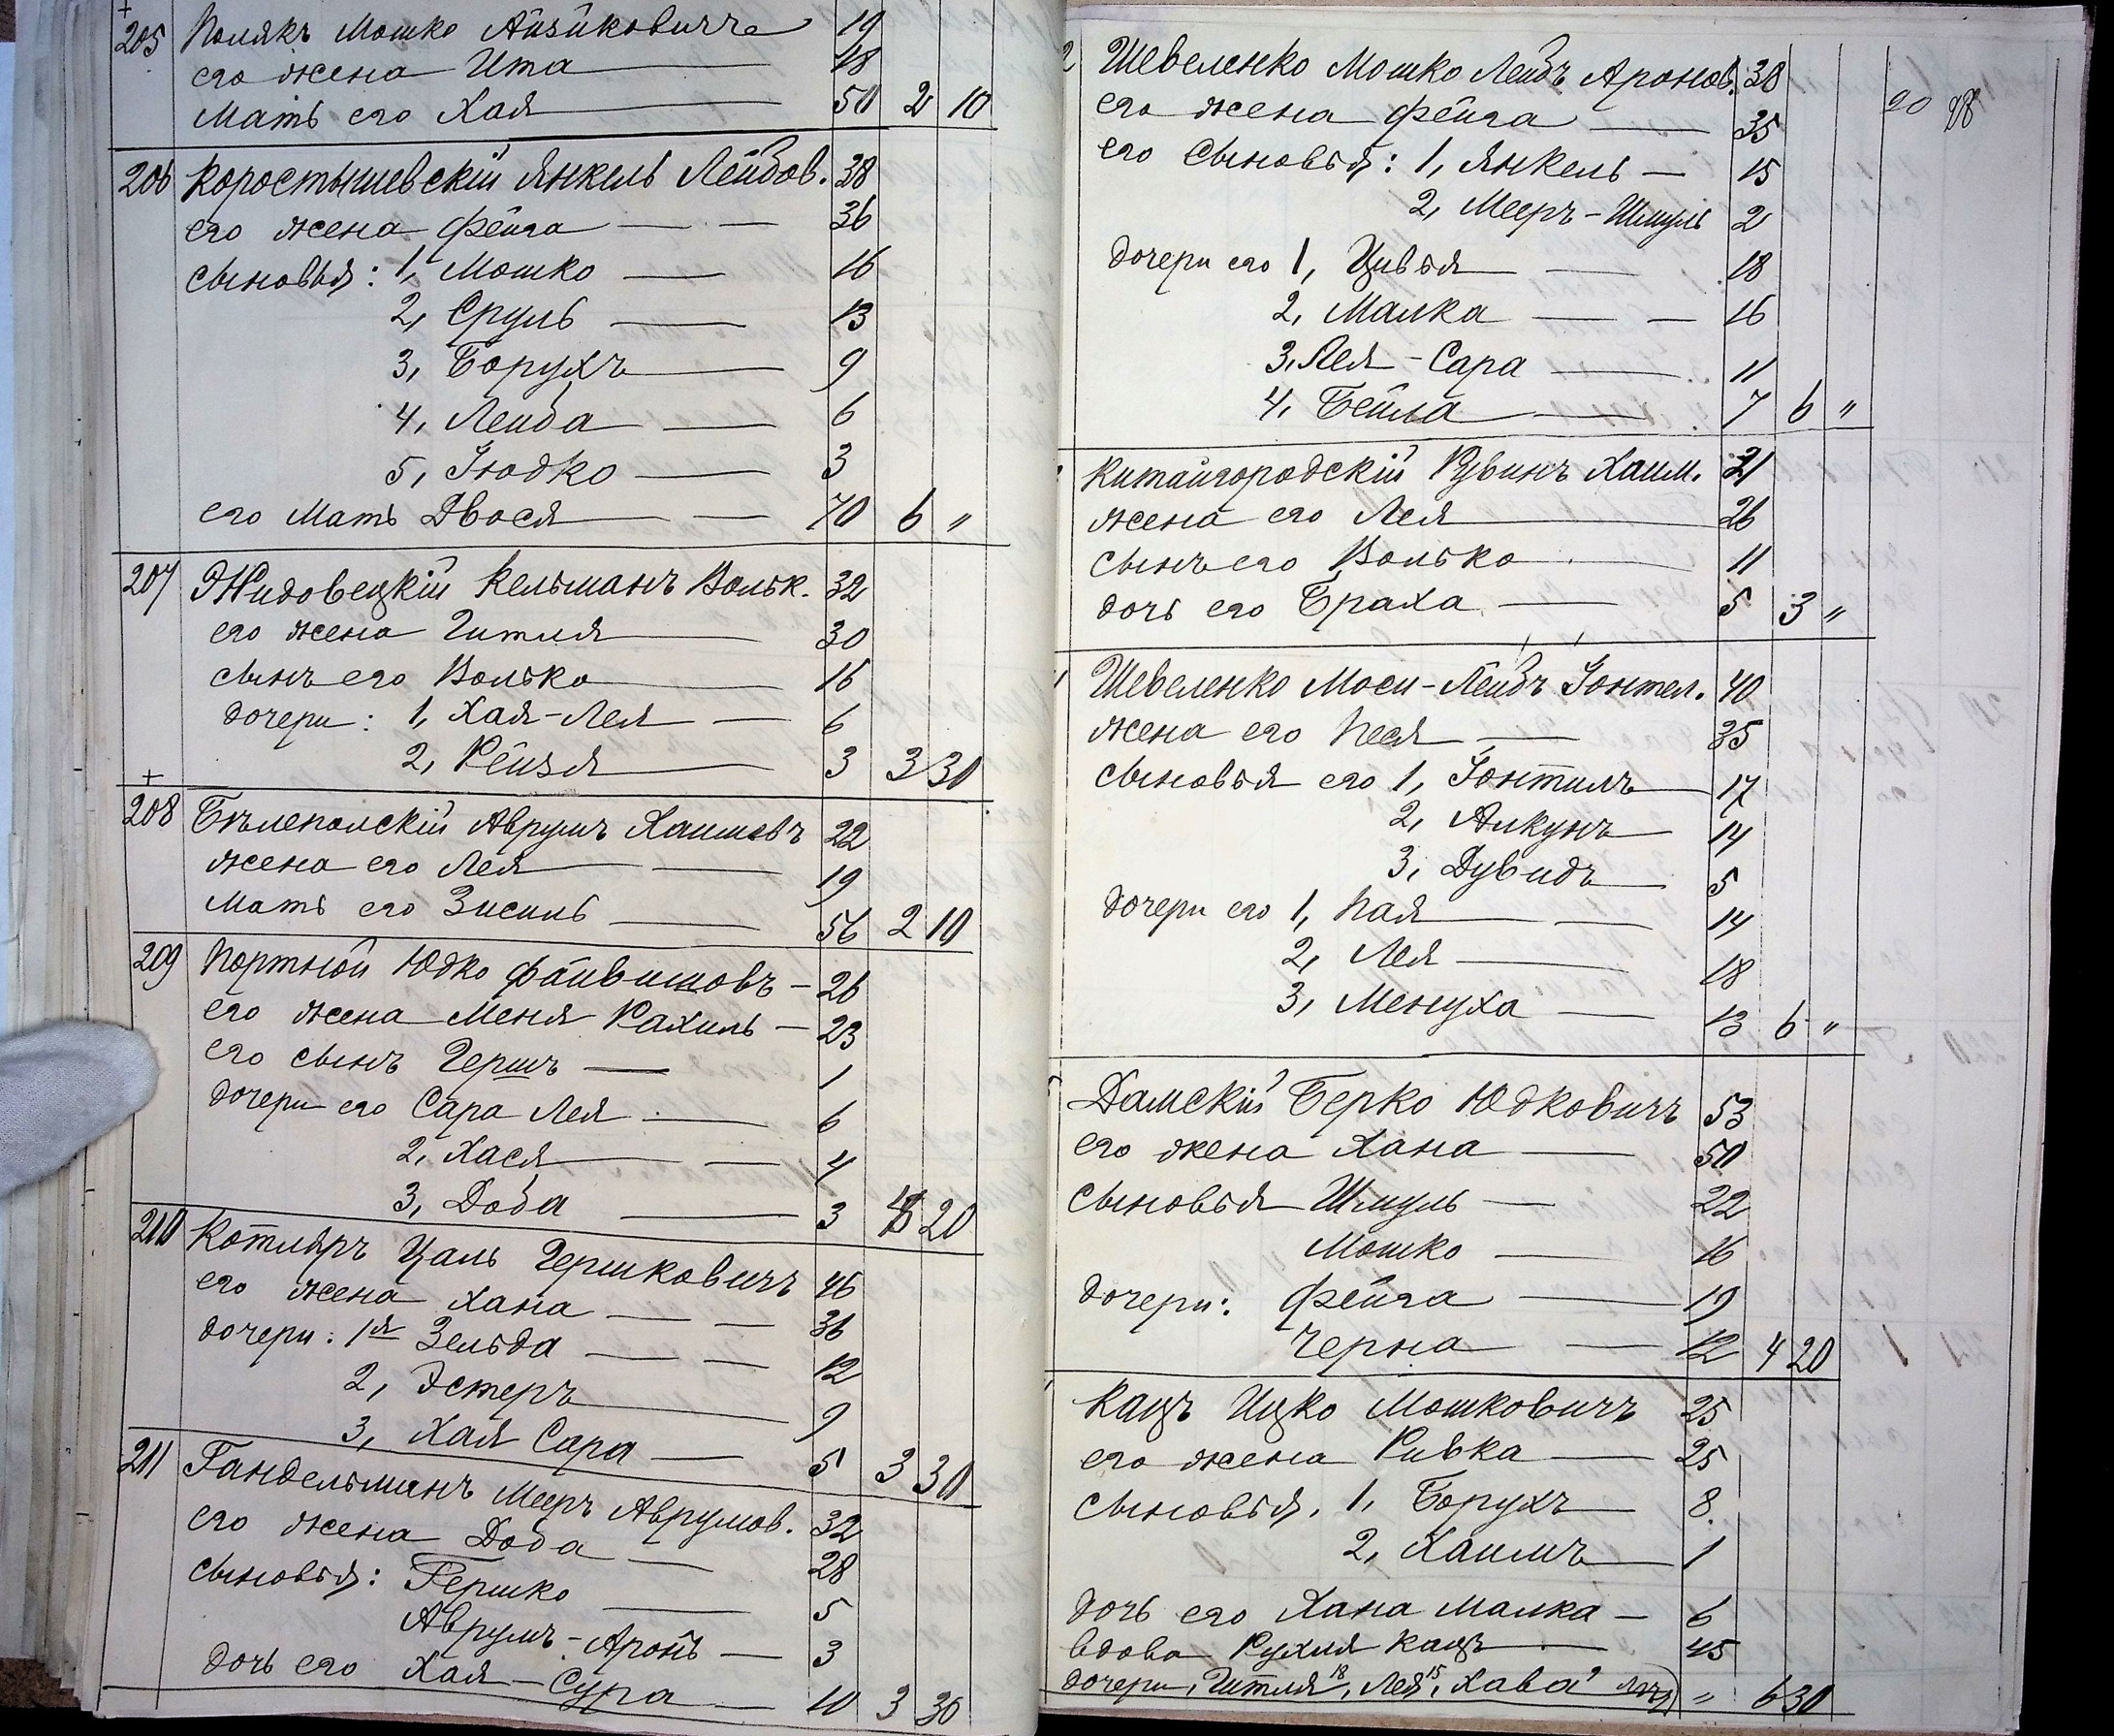 205 Полякъ Мошко Айзиковичъ 19
его жена Ита 18
Мать его Хая 50 2 10
206 Коростышевскій Янкель Лейбов. 38
его жена Фейга 36
сыновья: 1, Мошко 16
2, Сруль 13
3, Борухъ 9
4, Лейба 6
5, Іюдко 3
его Мать Двося 70 6 "
207 Жидовецкій Кельманъ Вольк. 32
его жена Гитля 30
сынъ его Волько 16
дочери: 1, Хая-Лея 6
2, Рейзя 3 3 30
208 Бѣлепольскій Аврумъ Хаимовъ 22
жена его Лея 19
Мать его Зисиль 56 2 10
209 Портной Юдко Файвишовъ 26
его жена Меня Рахиль 23
его сынъ Гершъ 1
дочери его Сара Лея 6
2, Хася 4
3, Доба 3 4 20
210 Котляръ Цаль Гершковичъ 46
его жена Хана 36
дочери: 1я Зельда 12
2, Эстеръ 9
3, Хая Сара 5 3 30
211 Гандельманъ Мееръ Аврумов. 32
его жена Доба 28
сыновья: Гершко 5
Аврумъ-Аронъ 3
дочь его Хая-Сура 10 3 30
20
2 Шевеленко Мошко Лейбъ Аронов. 38
его жена Фейга 35
его сыновья: 1, Янкель 15
2, Мееръ-Шмуль 2
дочери его 1, Цивья 18
2, Малка 16
3, Лея-Сара 11
4, Бейла 7 6 "
Китайгородскій Рувинъ Хаим. 31
жена его Лея 26
сынъ его Волько 11
дочь его Браха 5 3 "
Шевеленко Моси-Лейбъ Іонтел. 40
жена его Песя 35
сыновья его 1, Іонтиль 17
2, Алкунъ 14
3, Дувидъ 5
дочери его 1, Пая 14
2, Лея 18
3, Менуха 13 6 "
Дамскій Берко Юдковичъ 53
его жена Хана 50
сыновья Шмуль 22
Мошко 16
дочери: Фейга 19
Черна 12 4 20
Кацъ Ицко Мошковичъ 25
его жена Ривка 25
сыновья, 1, Борухъ 8
2, Хаимъ 1
дочь его Хана Малка 6
вдова Рухля Кацъ 45
дочери, Гитля 18, Лея 15, Хава " 6 30